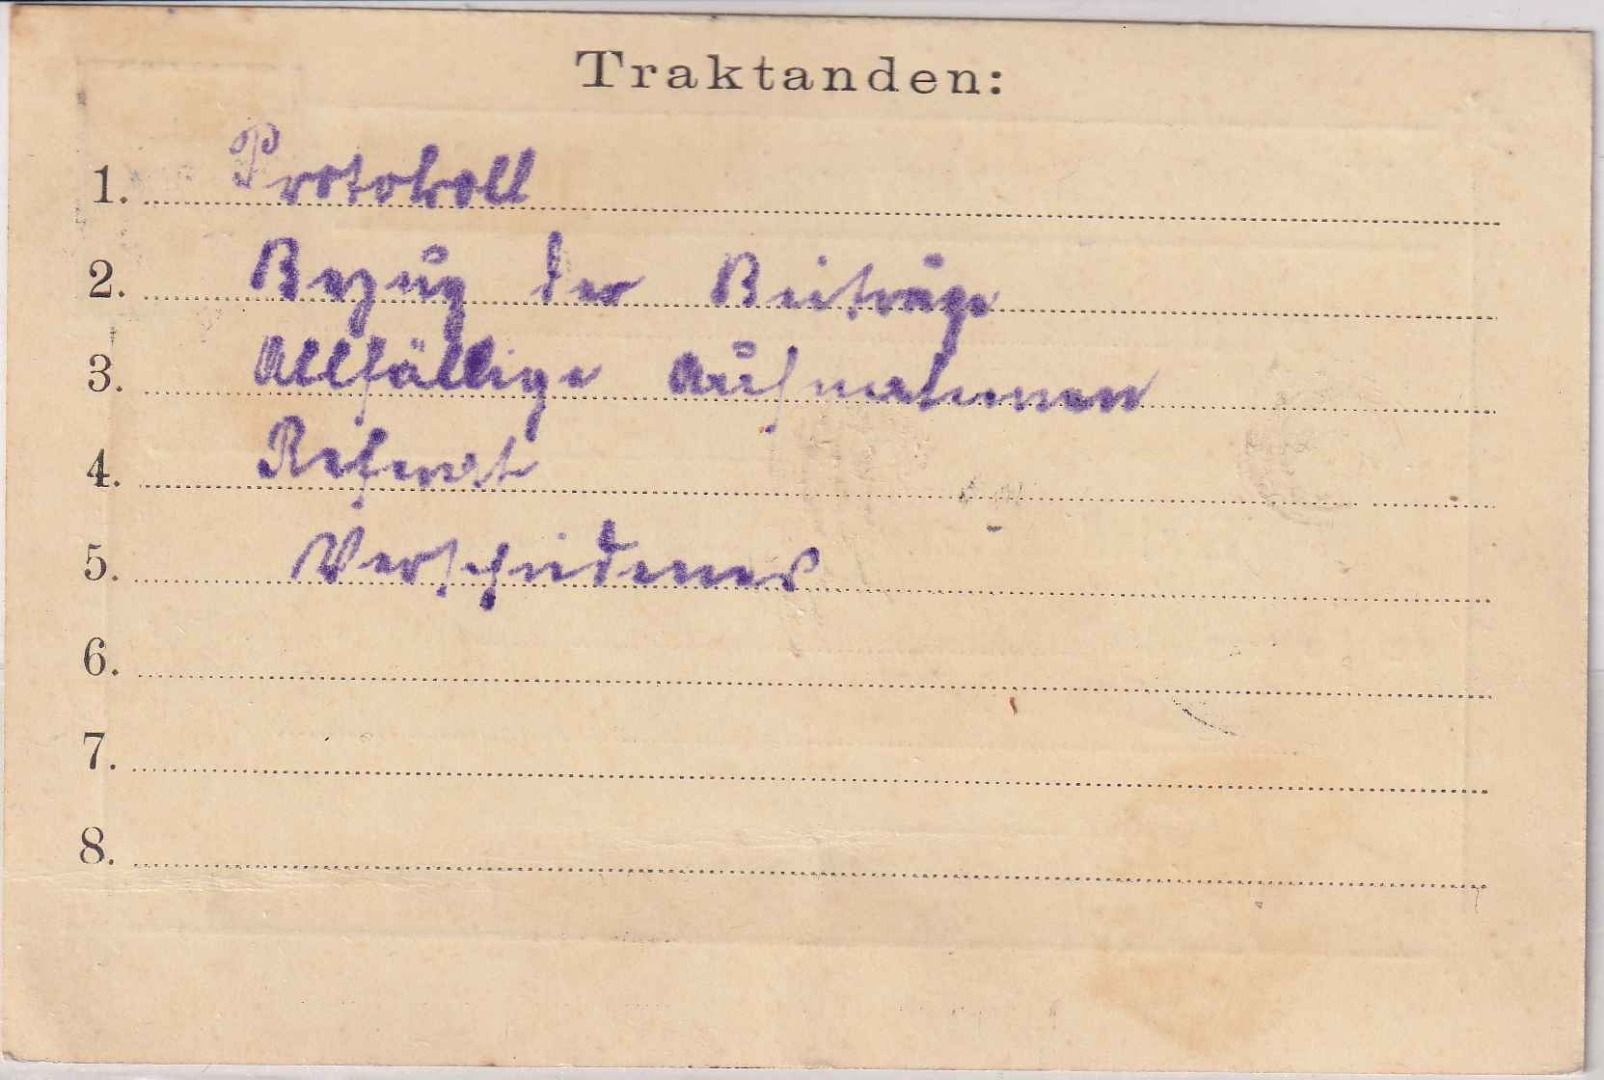 Traktanden:
1. Protokoll
2. Bezug der Beiträge
3. Allfällige Aufnahmen
4. Referat
5. Verschiedenes
6.
7.
8.